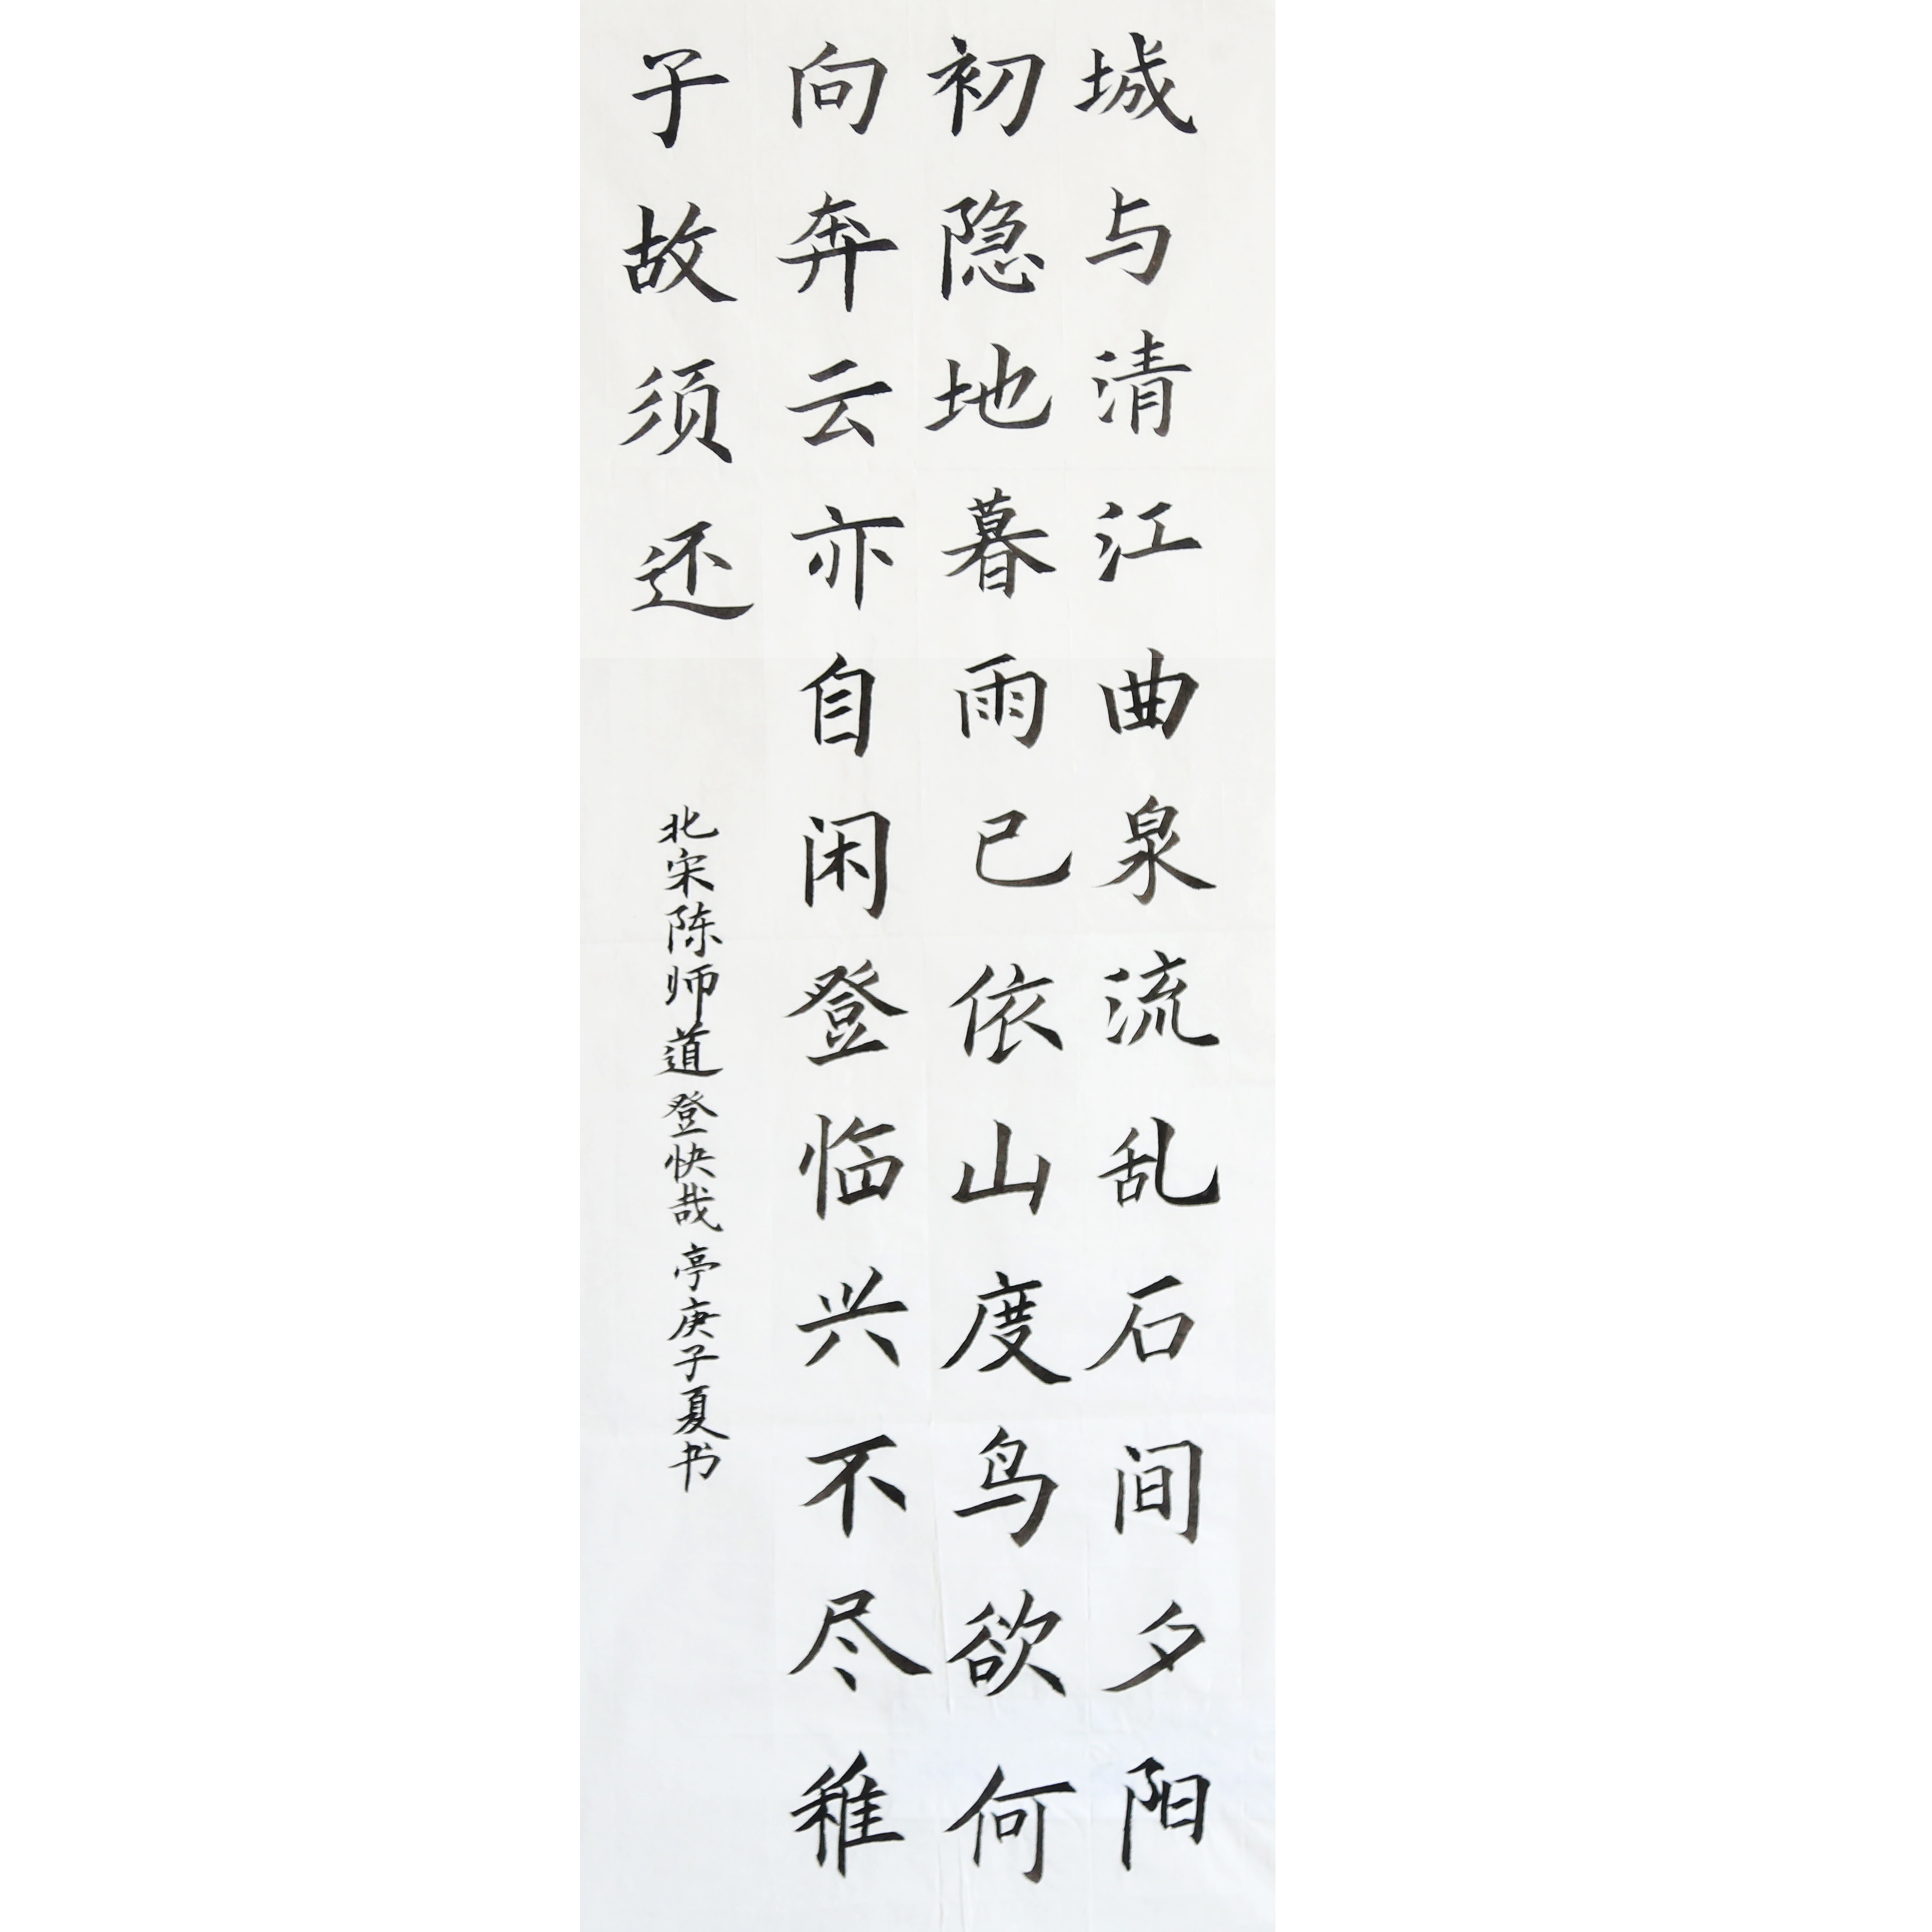 城与清江曲泉流乱石间夕阳
初隐地暮雨已依山度鸟欲何
向奔云亦自闲登临兴不尽稚
子故须还
北宋陈师道登快哉亭庚子夏书